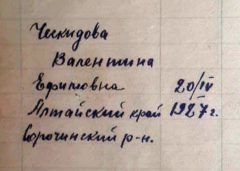 Ческидова
Валентина
Ефимовна 20/IV
Алтайский край 1927 г.
Сорочинский р-н.